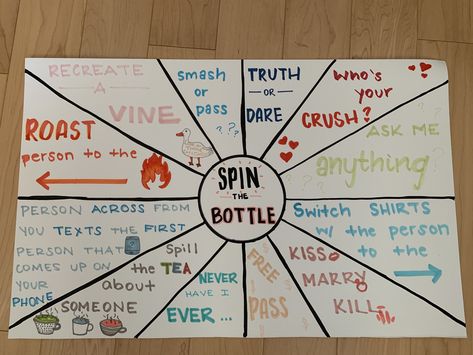 RECREATE
A
VINE
smash
or
pass
? ? ?
TRUTH
- OR -
DARE
Who's
your
CRUSH?
ASK ME
anything
ROAST
person to the
SPIN
THE
BOTTLE
PERSON ACROSS FROM
YOU TEXTS THE FIRST
PERSON THAT
COMES UP ON
YOUR
PHONE
Spill
the TEA
about
SOMEONE
NEVER
HAVE I
EVER...
FREE
PASS
KISS
MARRY
KILL
Switch SHIRTS
w/ the person
to the